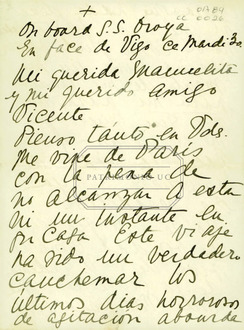 +
On board S.S. Oroya
En face de Vigo Ce Mardi 3a
Mi querida Manuelita
y mi querido Amigo
Vicente
Pienso tánto en Vds.
Me vine de Paris
con la pena de
no alcanzar a estar
ni un instante en
su Casa Este viaje
ha sido un verdadero
cauchemar los
últimos días horrorosos
de agitación absurda